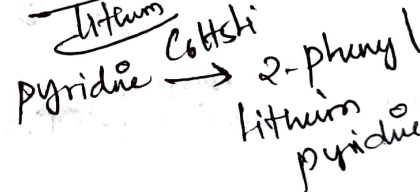 lithium
pyridine C6H5Li → 2-phenyl
lithium
pyridine